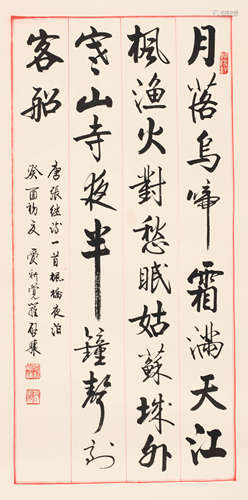 月落烏啼霜滿天江
楓漁火對愁眠姑蘇城外
寒山寺夜半鐘聲到
客船
唐張继诗一首楓橋夜泊
癸酉初夏愛新覺羅啓驤